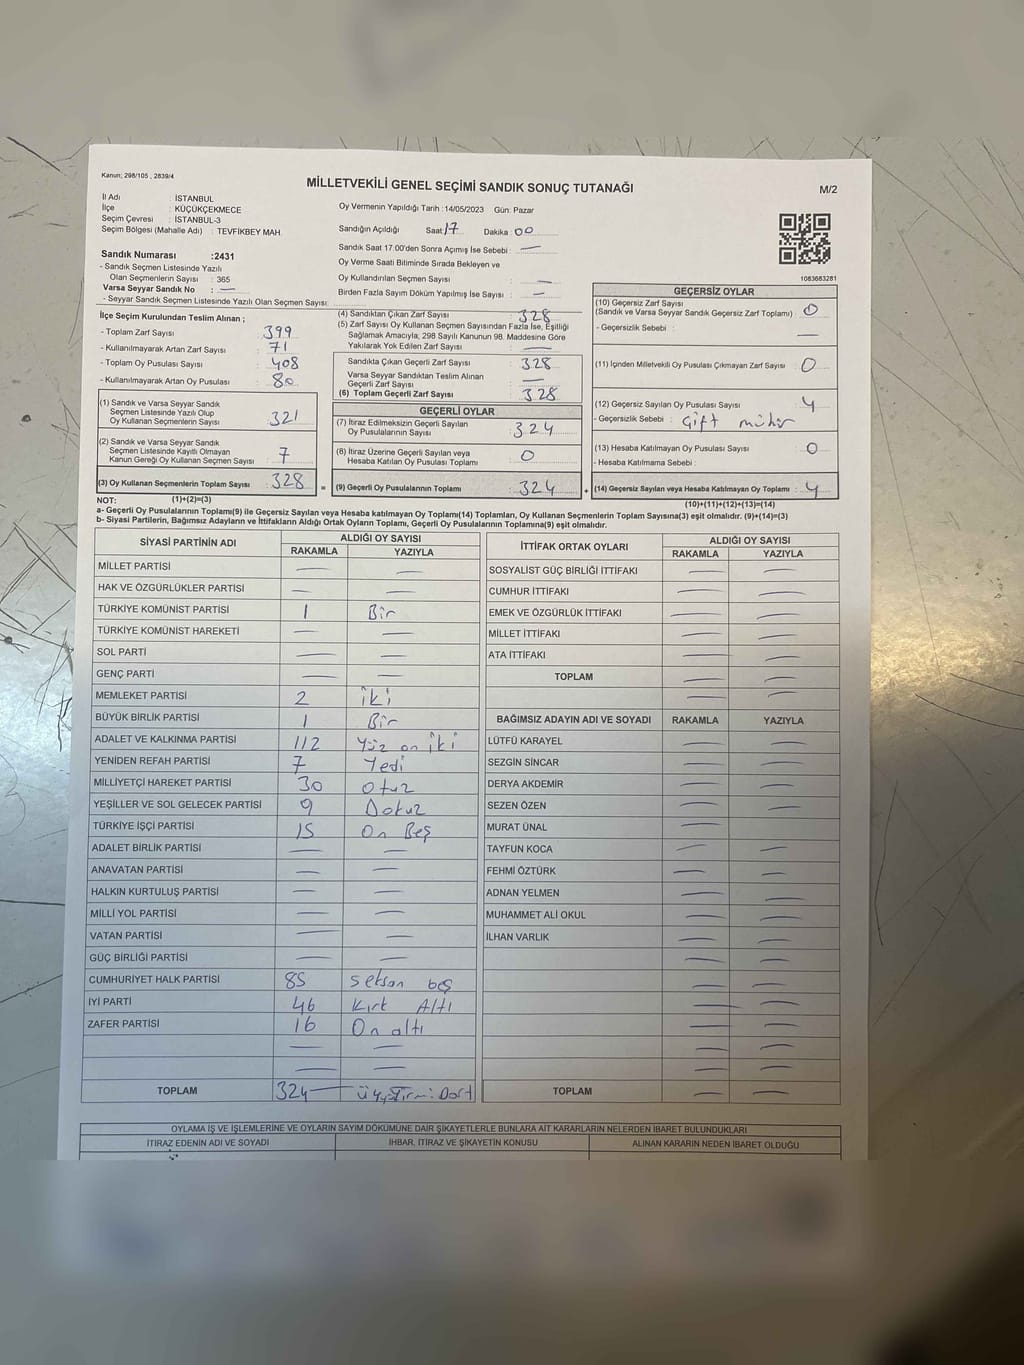 Kanun; 298/105 , 2839/4
MİLLETVEKİLİ GENEL SEÇİMİ SANDIK SONUÇ TUTANAĞI
M/2
İl Adı : İSTANBUL
İlçe : KÜÇÜKÇEKMECE
Seçim Çevresi : İSTANBUL-3
Seçim Bölgesi (Mahalle Adı) : TEVFİKBEY MAH.
Sandık Numarası :2431
- Sandık Seçmen Listesinde Yazılı
Olan Seçmenlerin Sayısı : 365
Varsa Seyyar Sandık No : —
- Seyyar Sandık Seçmen Listesinde Yazılı Olan Seçmen Sayısı:
Oy Vermenin Yapıldığı Tarih :14/05/2023 Gün: Pazar
Sandığın Açıldığı Saat 17 Dakika : 00
Sandık Saat 17.00'den Sonra Açımış İse Sebebi : —
Oy Verme Saati Bitiminde Sırada Bekleyen ve
Oy Kullandırılan Seçmen Sayısı : —
Birden Fazla Sayım Döküm Yapılmış İse Sayısı : —
1083683281
İlçe Seçim Kurulundan Teslim Alınan ;
- Toplam Zarf Sayısı : 399
- Kullanılmayarak Artan Zarf Sayısı : 71
- Toplam Oy Pusulası Sayısı : 408
- Kullanılmayarak Artan Oy Pusulası : 80
(1) Sandık ve Varsa Seyyar Sandık
Seçmen Listesinde Yazılı Olup
Oy Kullanan Seçmenlerin Sayısı : 321
(2) Sandık ve Varsa Seyyar Sandık
Seçmen Listesinde Kayıtlı Olmayan
Kanun Gereği Oy Kullanan Seçmen Sayısı : 7
(3) Oy Kullanan Seçmenlerin Toplam Sayısı : 328
(1)+(2)=(3)
(4) Sandıktan Çıkan Zarf Sayısı : 328
(5) Zarf Sayısı Oy Kullanan Seçmen Sayısından Fazla İse, Eşitliği
Sağlamak Amacıyla, 298 Sayılı Kanunun 98. Maddesine Göre
Yakılarak Yok Edilen Zarf Sayısı : —
Sandıkta Çıkan Geçerli Zarf Sayısı : 328
Varsa Seyyar Sandıktan Teslim Alınan
Geçerli Zarf Sayısı : —
(6) Toplam Geçerli Zarf Sayısı : 328
GEÇERLİ OYLAR
(7) İtiraz Edilmeksizin Geçerli Sayılan
Oy Pusulalarının Sayısı : 324
(8) İtiraz Üzerine Geçerli Sayılan veya
Hesaba Katılan Oy Pusulası Toplamı : 0
= (9) Geçerli Oy Pusulalarının Toplamı : 324
GEÇERSİZ OYLAR
(10) Geçersiz Zarf Sayısı
(Sandık ve Varsa Seyyar Sandık Geçersiz Zarf Toplamı) : 0
- Geçersizlik Sebebi : —
(11) İçinden Milletvekili Oy Pusulası Çıkmayan Zarf Sayısı : 0
(12) Geçersiz Sayılan Oy Pusulası Sayısı : 4
- Geçersizlik Sebebi : Çift mühür
(13) Hesaba Katılmayan Oy Pusulası Sayısı : 0
- Hesaba Katılmama Sebebi :
+ (14) Geçersiz Sayılan veya Hesaba Katılmayan Oy Toplamı : 4
(10)+(11)+(12)+(13)=(14)
NOT:
a- Geçerli Oy Pusulaları Toplamı(9) ile Geçersiz Sayılan veya Hesaba katılmayan Oy Toplamı(14) Toplamları, Oy Kullanan Seçmenlerin Toplam Sayısına(3) eşit olmalıdır. (9)+(14)=(3)
b- Siyasi Partilerin, Bağımsız Adayların ve İttifakların Aldığı Ortak Oyların Toplamı, Geçerli Oy Pusulalarının Toplamına(9) eşit olmalıdır.
SİYASİ PARTİNİN ADI ALDIĞI OY SAYISI
RAKAMLA YAZIYLA
MİLLET PARTİSİ — —
HAK VE ÖZGÜRLÜKLER PARTİSİ — —
TÜRKİYE KOMÜNİST PARTİSİ 1 Bir
TÜRKİYE KOMÜNİST HAREKETİ — —
SOL PARTİ — —
GENÇ PARTİ — —
MEMLEKET PARTİSİ 2 iki
BÜYÜK BİRLİK PARTİSİ 1 Bir
ADALET VE KALKINMA PARTİSİ 112 Yüz on iki
YENİDEN REFAH PARTİSİ 7 Yedi
MİLLİYETÇİ HAREKET PARTİSİ 30 otuz
YEŞİLLER VE SOL GELECEK PARTİSİ 9 Dokuz
TÜRKİYE İŞÇİ PARTİSİ 15 On Beş
ADALET BİRLİK PARTİSİ — —
ANAVATAN PARTİSİ — —
HALKIN KURTULUŞ PARTİSİ — —
MİLLİ YOL PARTİSİ — —
VATAN PARTİSİ — —
GÜÇ BİRLİĞİ PARTİSİ — —
CUMHURİYET HALK PARTİSİ 85 seksan beş
İYİ PARTİ 46 Kırk Altı
ZAFER PARTİSİ 16 On altı
TOPLAM 324
İTTİFAK ORTAK OYLARI ALDIĞI OY SAYISI
RAKAMLA YAZIYLA
SOSYALİST GÜÇ BİRLİĞİ İTTİFAKI — —
CUMHUR İTTİFAKI — —
EMEK VE ÖZGÜRLÜK İTTİFAKI — —
MİLLET İTTİFAKI — —
ATA İTTİFAKI — —
TOPLAM — —
BAĞIMSIZ ADAYIN ADI VE SOYADI RAKAMLA YAZIYLA
LÜTFÜ KARAYEL — —
SEZGİN SİNCAR — —
DERYA AKDEMİR — —
SEZEN ÖZEN — —
MURAT ÜNAL —
TAYFUN KOCA — —
FEHMİ ÖZTÜRK — —
ADNAN YELMEN — —
MUHAMMET ALİ OKUL — —
İLHAN VARLIK — —
TOPLAM — —
OYLAMA İŞ VE İŞLEMLERİNE VE OYLARIN SAYIM DÖKÜMÜNE DAİR ŞİKAYETLERLE BUNLARA AİT KARARLARIN NELERDEN İBARET BULUNDUKLARI
İTİRAZ EDENİN ADI VE SOYADI İHBAR, İTİRAZ VE ŞİKAYETİN KONUSU ALINAN KARARIN NEDEN İBARET OLDUĞU